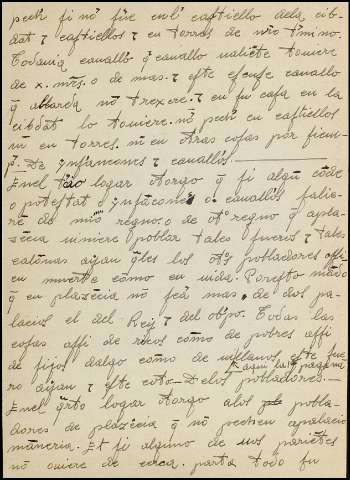 pech si nō fue enl' castiello dela cib-
dat τ castiellos τ en torres de mio t'mino.
Todauia cauallo q̄ cauallo ualiēte touiere
de x. mr̄s. o de mas. τ este escuse cauallo
q̄ albarda nō trexere. τ en su casa en la
cibdat lo touiere. nō pech en castiellos
ni en torres. ni en otras cosas por siem-
p'. De ynfancones τ cauall's.
Enel logar otorgo q̄ si algū cōde
o potestat o ynfācones o cauallos salie-
rē de mio regno. o de ot° regno q̄ apla-
zēcia uiniere poblar tales fueros τ tales
calonas ayan q̄les los ot°s pobladores assi
en muerte cōmo en uida. Poresto mādo
q̄ en plazēcia nō seā mas, de dos pa-
lacios el del Rey τ del obpo. Todas las
cosas assi de ricos cōmo de pobres assi
de fijos dalgo cōmo de uillanos este fue-
ro ayan τ este coto — Delos pobladores. —
Enel q̄rto logar otorgo alos pobla-
dores de plazēcia q̄ nō pechen apalacio
māneria. Et si alguno de sus pariētes
nō ouiere de cerca. parta todo su